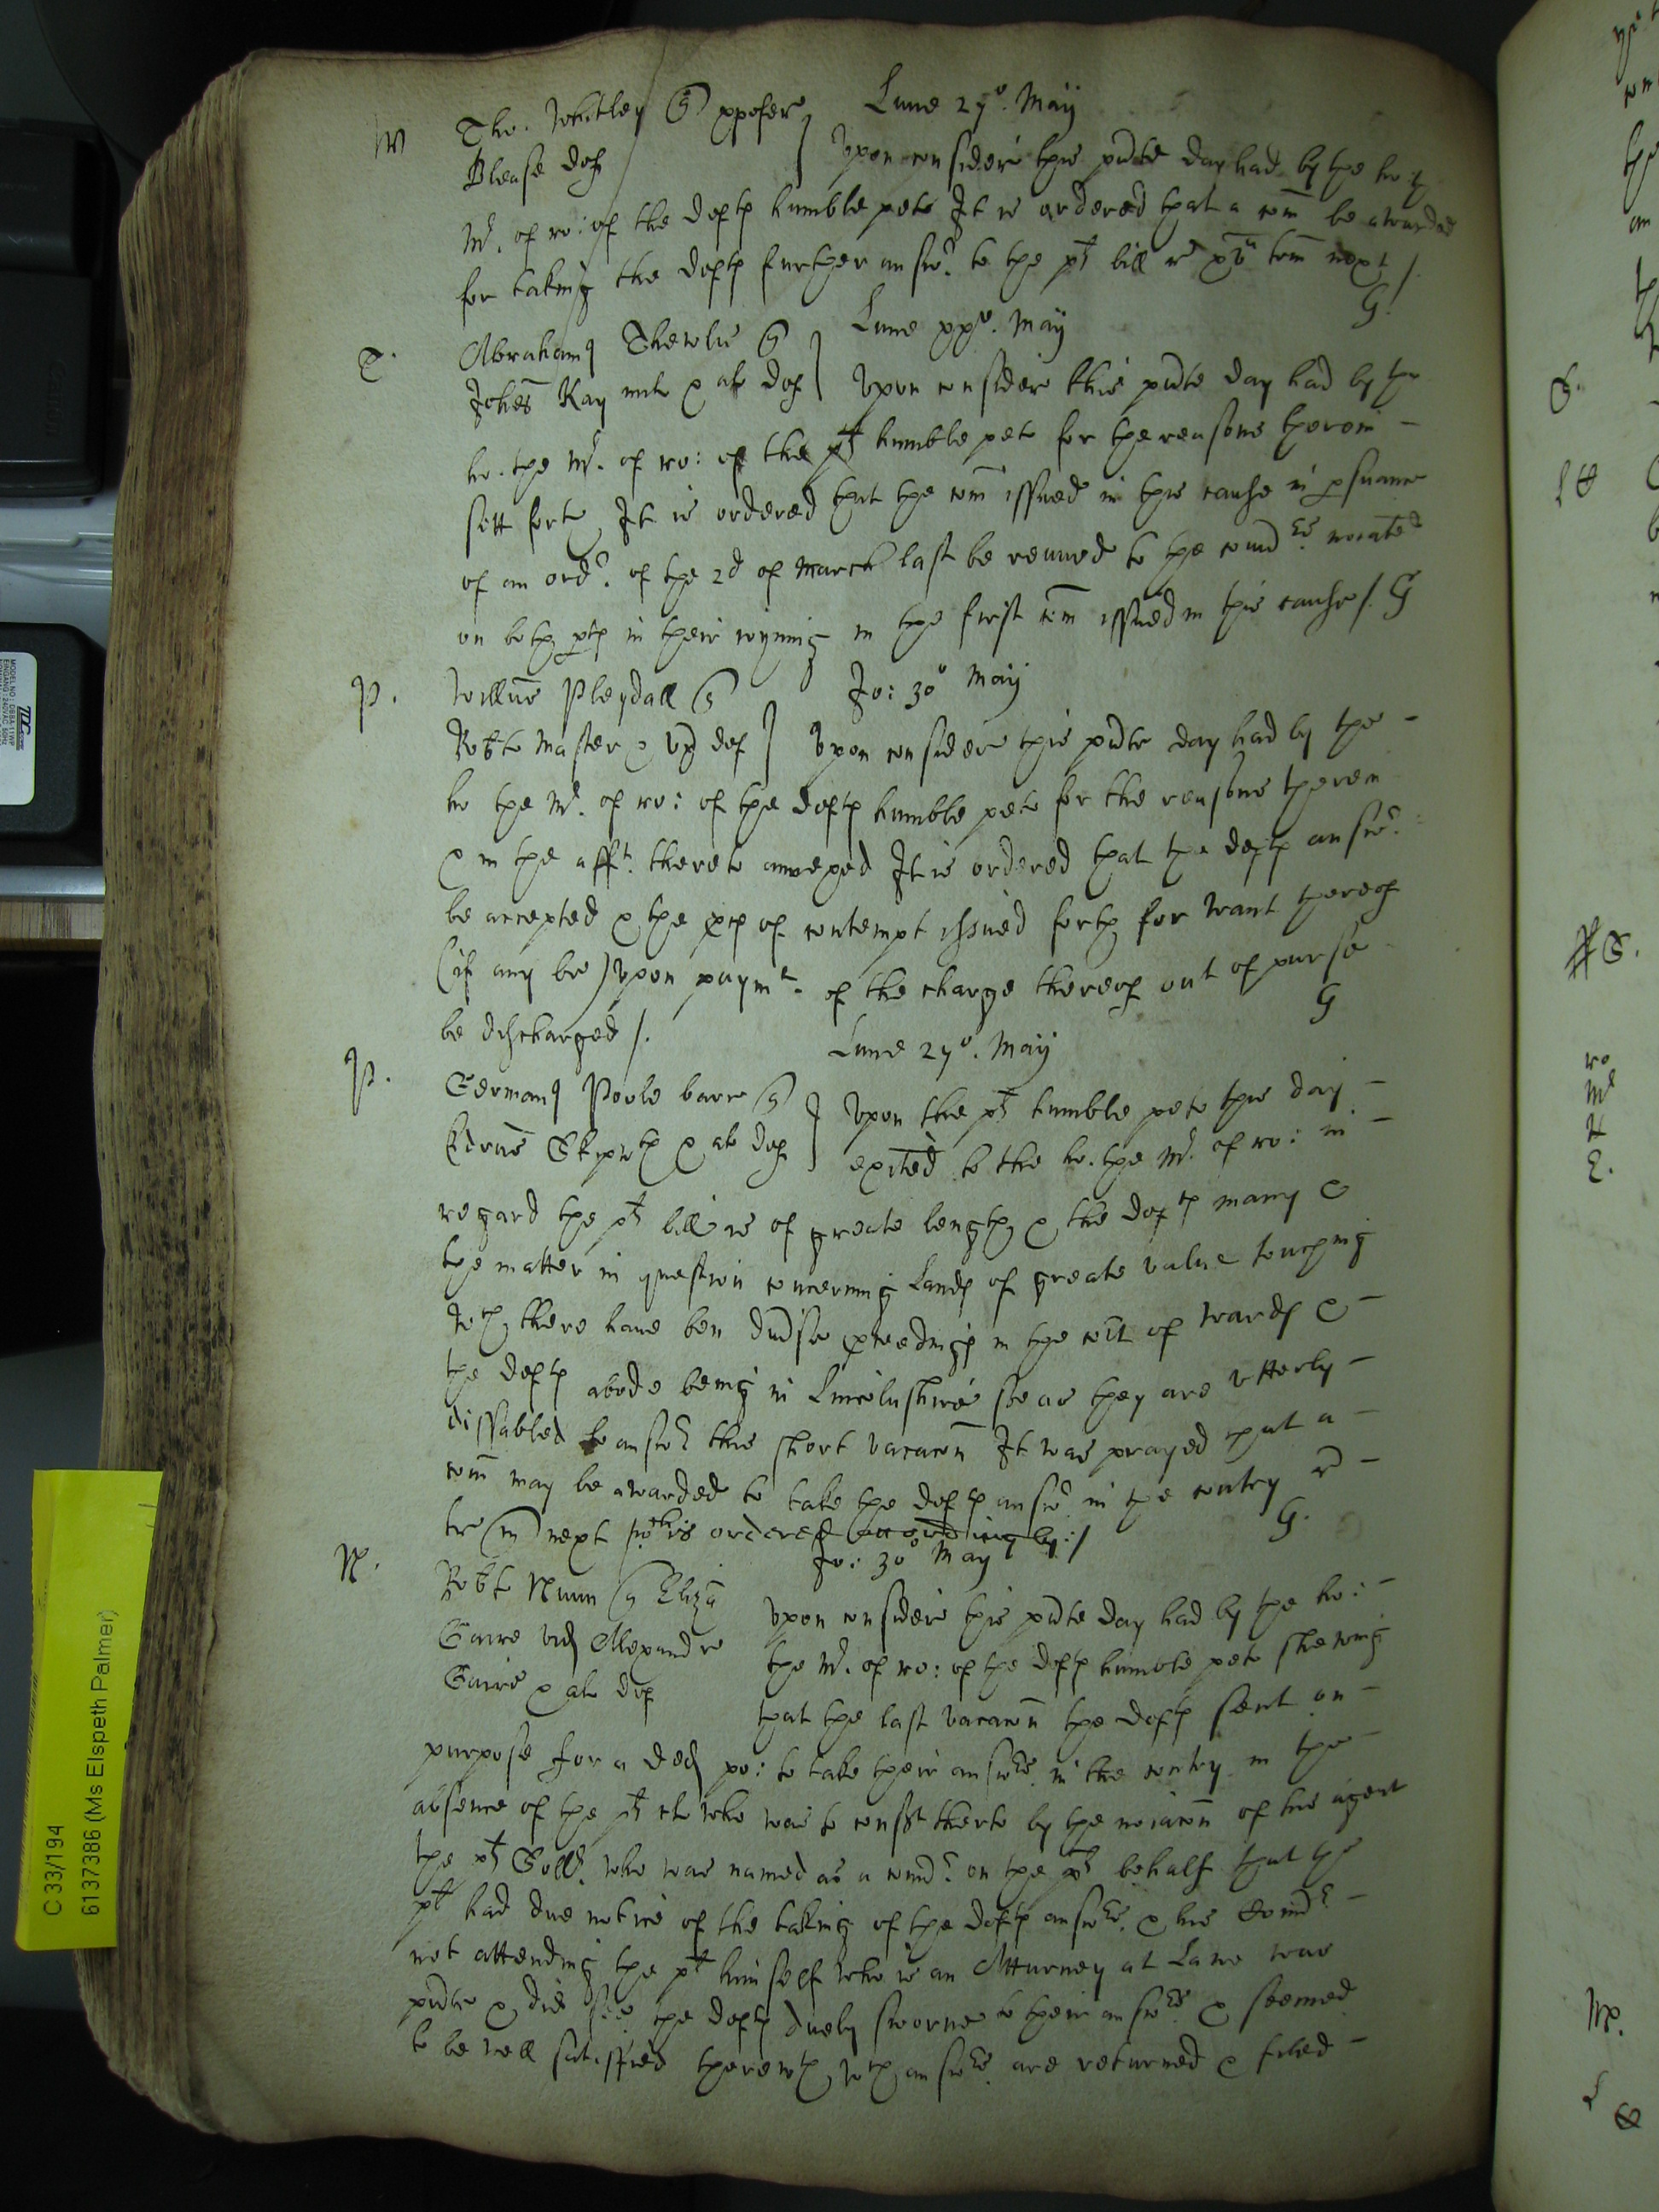 W Tho. Whitley q xpofer } Lune 27°. May
Blease def } Upon consider this pnte day had by the ho: the
Mr. of ro: of the defts humble peto It is ordered that a com be awarded
for taking the defts further answr. to the plt bill r next /.
G.
T. Abrahamq Thewlis q } Lune xx°. May
Johes Kay mil & al def } Upon consider this pnte day had by the
ho. the Mr. of ro: of the plt humble peto for the reasons therein
sett forth It is ordered that the com issued in this cause in psuance
of an ordr. of the 2d of March last be renued to the comrs noiated
on both pts in their ioyning in the first com issued in this cause /. G
P. Willus Pleydall q } Jo: 30° May
Robto Master & Ux def } Upon consider this pnte day had by the
ho the Mr. of ro: of the defts humble peto for the reasons therein
& in the afft. thereto annexed It is ordered that the defts answr.
be accepted & the pces of contempt issued forth for want thereof
(if any be) Upon paymt. of the charge thereof out of purse
be discharged /.
G
Lune 27°. May
P. Germanq Poole barr q } Upon the plt humble peto this day
Edrus Skipwth & al def } exited to the ho. the Mr. of ro: in
regard the plt bill is of greate length & the defts many &
the matter in question concerning Lands of greate value touching
wch there have ben divse pceedings in the cort of wards &
the defts abode being in Lincolnshire soe as they are utterly
dissabled to answr this short vacacon It was prayed that a
com may be awarded to take the defts answr in the contry r
tr (m) next wch is ordered accordingly: /
G.
Jo: 30° May
N. Robt Nunn q Eliza Upon consider this pnte day had by the ho:
Gaire vid Alexandre the Mr. of ro: of the defts humble peto shewing
Gaire & al def that the last vacacon the defts sent on
purpose for a ded po: to take their answrs. in the contry in the
absence of the plt cl who was to const therto by the noiacon of his agent
the plt Sollr. who was named as a comr. on the plt behalf that the
plt had due notice of the taking of the defts answrs. & his Comr
not attending the plt himself who is an Atturney at Lawe was
pnte & did see the defts duely sworne to their answrs & seemed
to be well satisfied therewth wch answrs. are returned & filed
C 33/194
6137386 (Ms Elspeth Palmer)